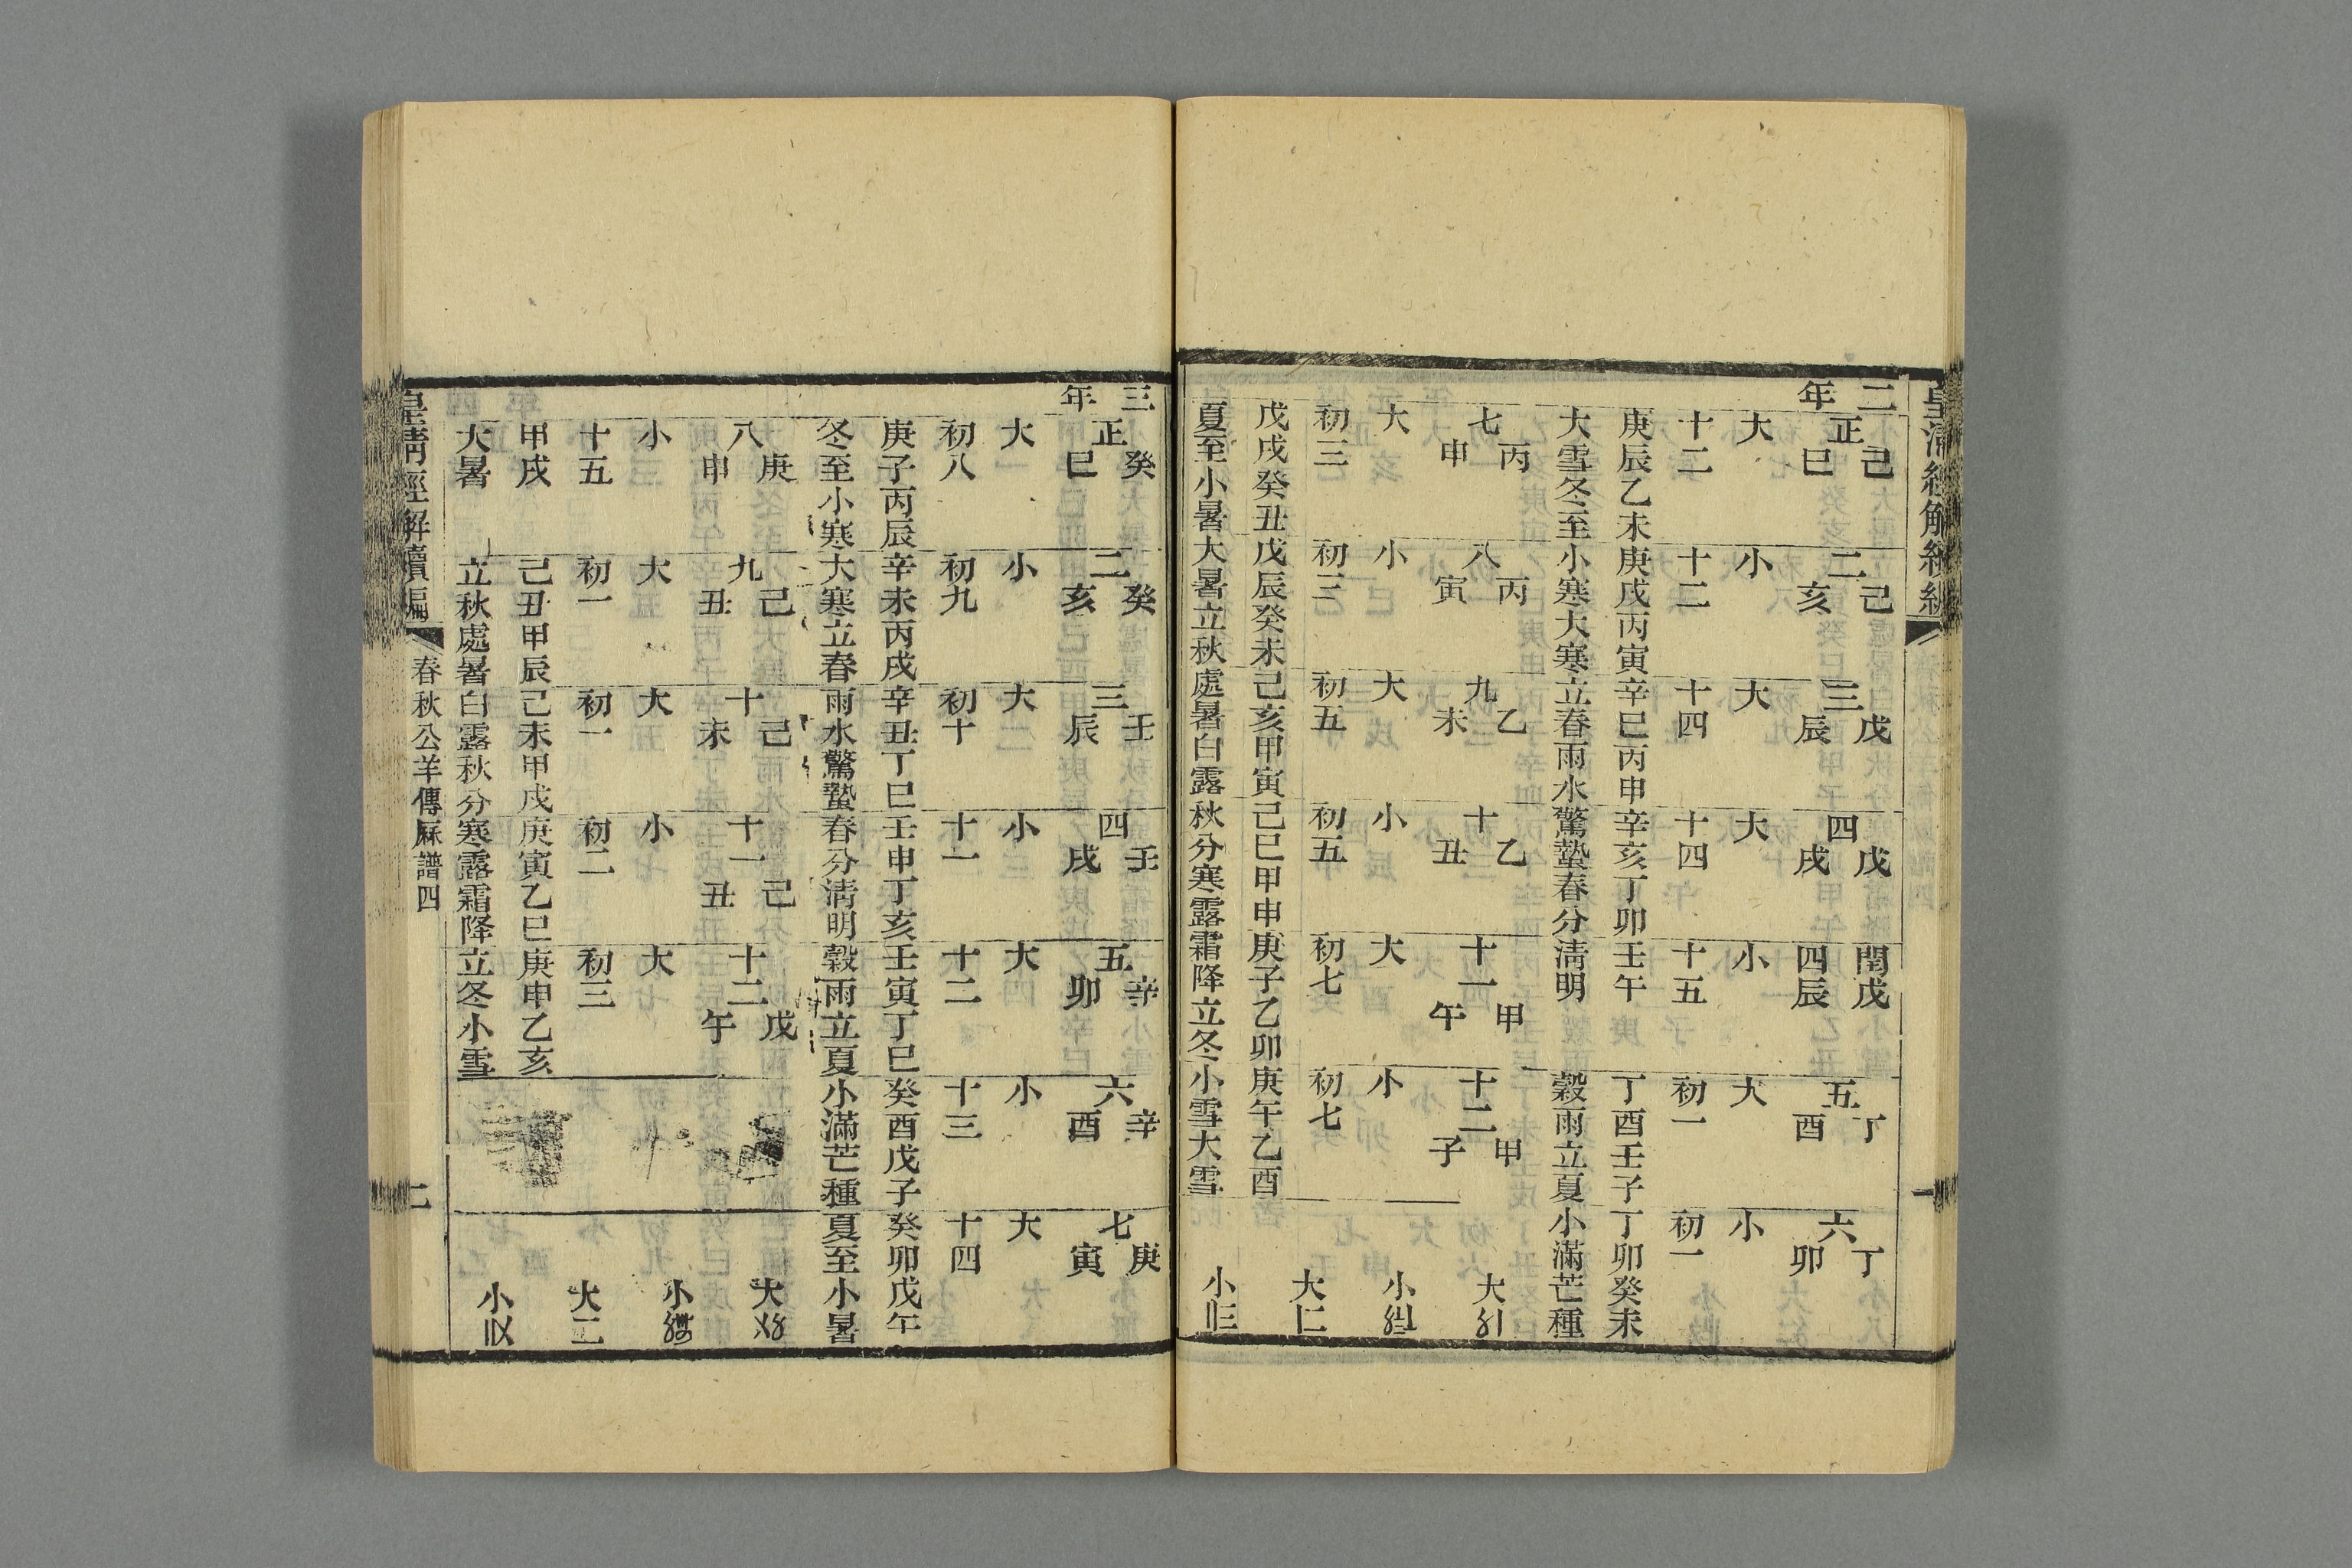 皇淸經解續編
二年 正己巳 二己亥 三戊辰 四戊戌 閏四戊辰 五丁酉 六丁卯
大 小 大 大 小 大 小
十二 十二 十四 十四 十五 初一 初一
庚辰乙未 庚戌丙寅 辛巳丙申 辛亥丁卯 壬午 丁酉壬子 丁卯癸未
大雪冬至 小寒大寒 立春雨水 驚蟄春分 淸明 穀雨立夏 小滿芒種
七丙申 八丙寅 九乙未 十乙丑 十一甲午 十二甲子 大
大 小 大 小 大 小 小
初三 初三 初五 初五 初七 初七 大
戊戌癸丑 戊辰癸未 己亥甲寅 己巳甲申 庚子乙卯 庚午乙酉
夏至小暑 大暑立秋 處暑白露 秋分寒露 霜降立冬 小雪大雪 小
三年 正癸巳 二癸亥 三壬辰 四壬戌 五辛卯 六辛酉 七庚寅
大 小 大 小 大 小 大
初八 初九 初十 十一 十二 十三 十四
庚子丙辰 辛未丙戌 辛丑丁巳 壬申丁亥 壬寅丁巳 癸酉戊子 癸卯戊午
冬至小寒 大寒立春 雨水驚蟄 春分淸明 穀雨立夏 小滿芒種 夏至小暑
八庚申 九己丑 十己未 十一己丑 十二戊午 大
小 大 大 小 大 小
十五 初一 初一 初二 初三 大
甲戌 己丑甲辰 己未甲戌 庚寅乙巳 庚申乙亥
大暑 立秋處暑 白露秋分 寒露霜降 立冬小雪 小
皇淸經解續編 春秋公羊傳厤譜四 二